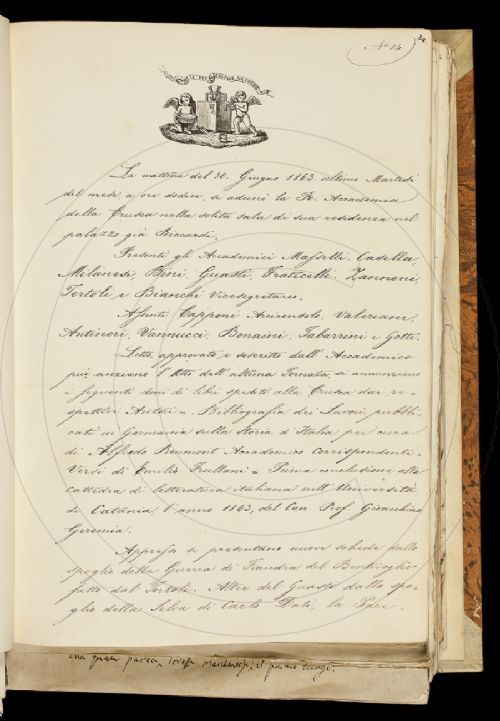 No 14
La mattina del 30. Giugno 1863. ultimo Martedì
del mese a ore dodici, si adunò la R. Accademia
della Crusca nella solita sala di sua residenza nel
palazzo già Riccardi.
Presenti gli Accademici Masselli, Casella,
Milanesi, Bini, Guasti, Fraticelli, Zannoni,
Tortoli, e Bianchi Vicesegretario.
Assenti Capponi Arciconsolo, Valeriani,
Antinori, Vannucci, Bonaini, Tabarrini e Gotti.
Letto, approvato e sottoscritto dall'Accademico
più anziano l'Atto dell'ultima Tornata, si annunziano
i seguenti doni di libri spediti alla Crusca dai re-
spettivi Autori = Bibliografia dei Lavori pubbli-
cati in Germania sulla Storia d'Italia per cura
di Alfredo Reumont Accademico Corrispondente.
Versi di Emilio Frullani = Prima conclusione alla
Cattedra di letteratura italiana nell'Università
di Catania, l'anno 1863, del Can. Prof. Gioacchino
Geremia.
Appresso si presentano nuove schede dallo
spoglio della Guerra di Fiandra del Bentivoglio
fatto dal Tortoli. Altre del Guasti dallo spo-
glio della Selva di Carlo Dati, la